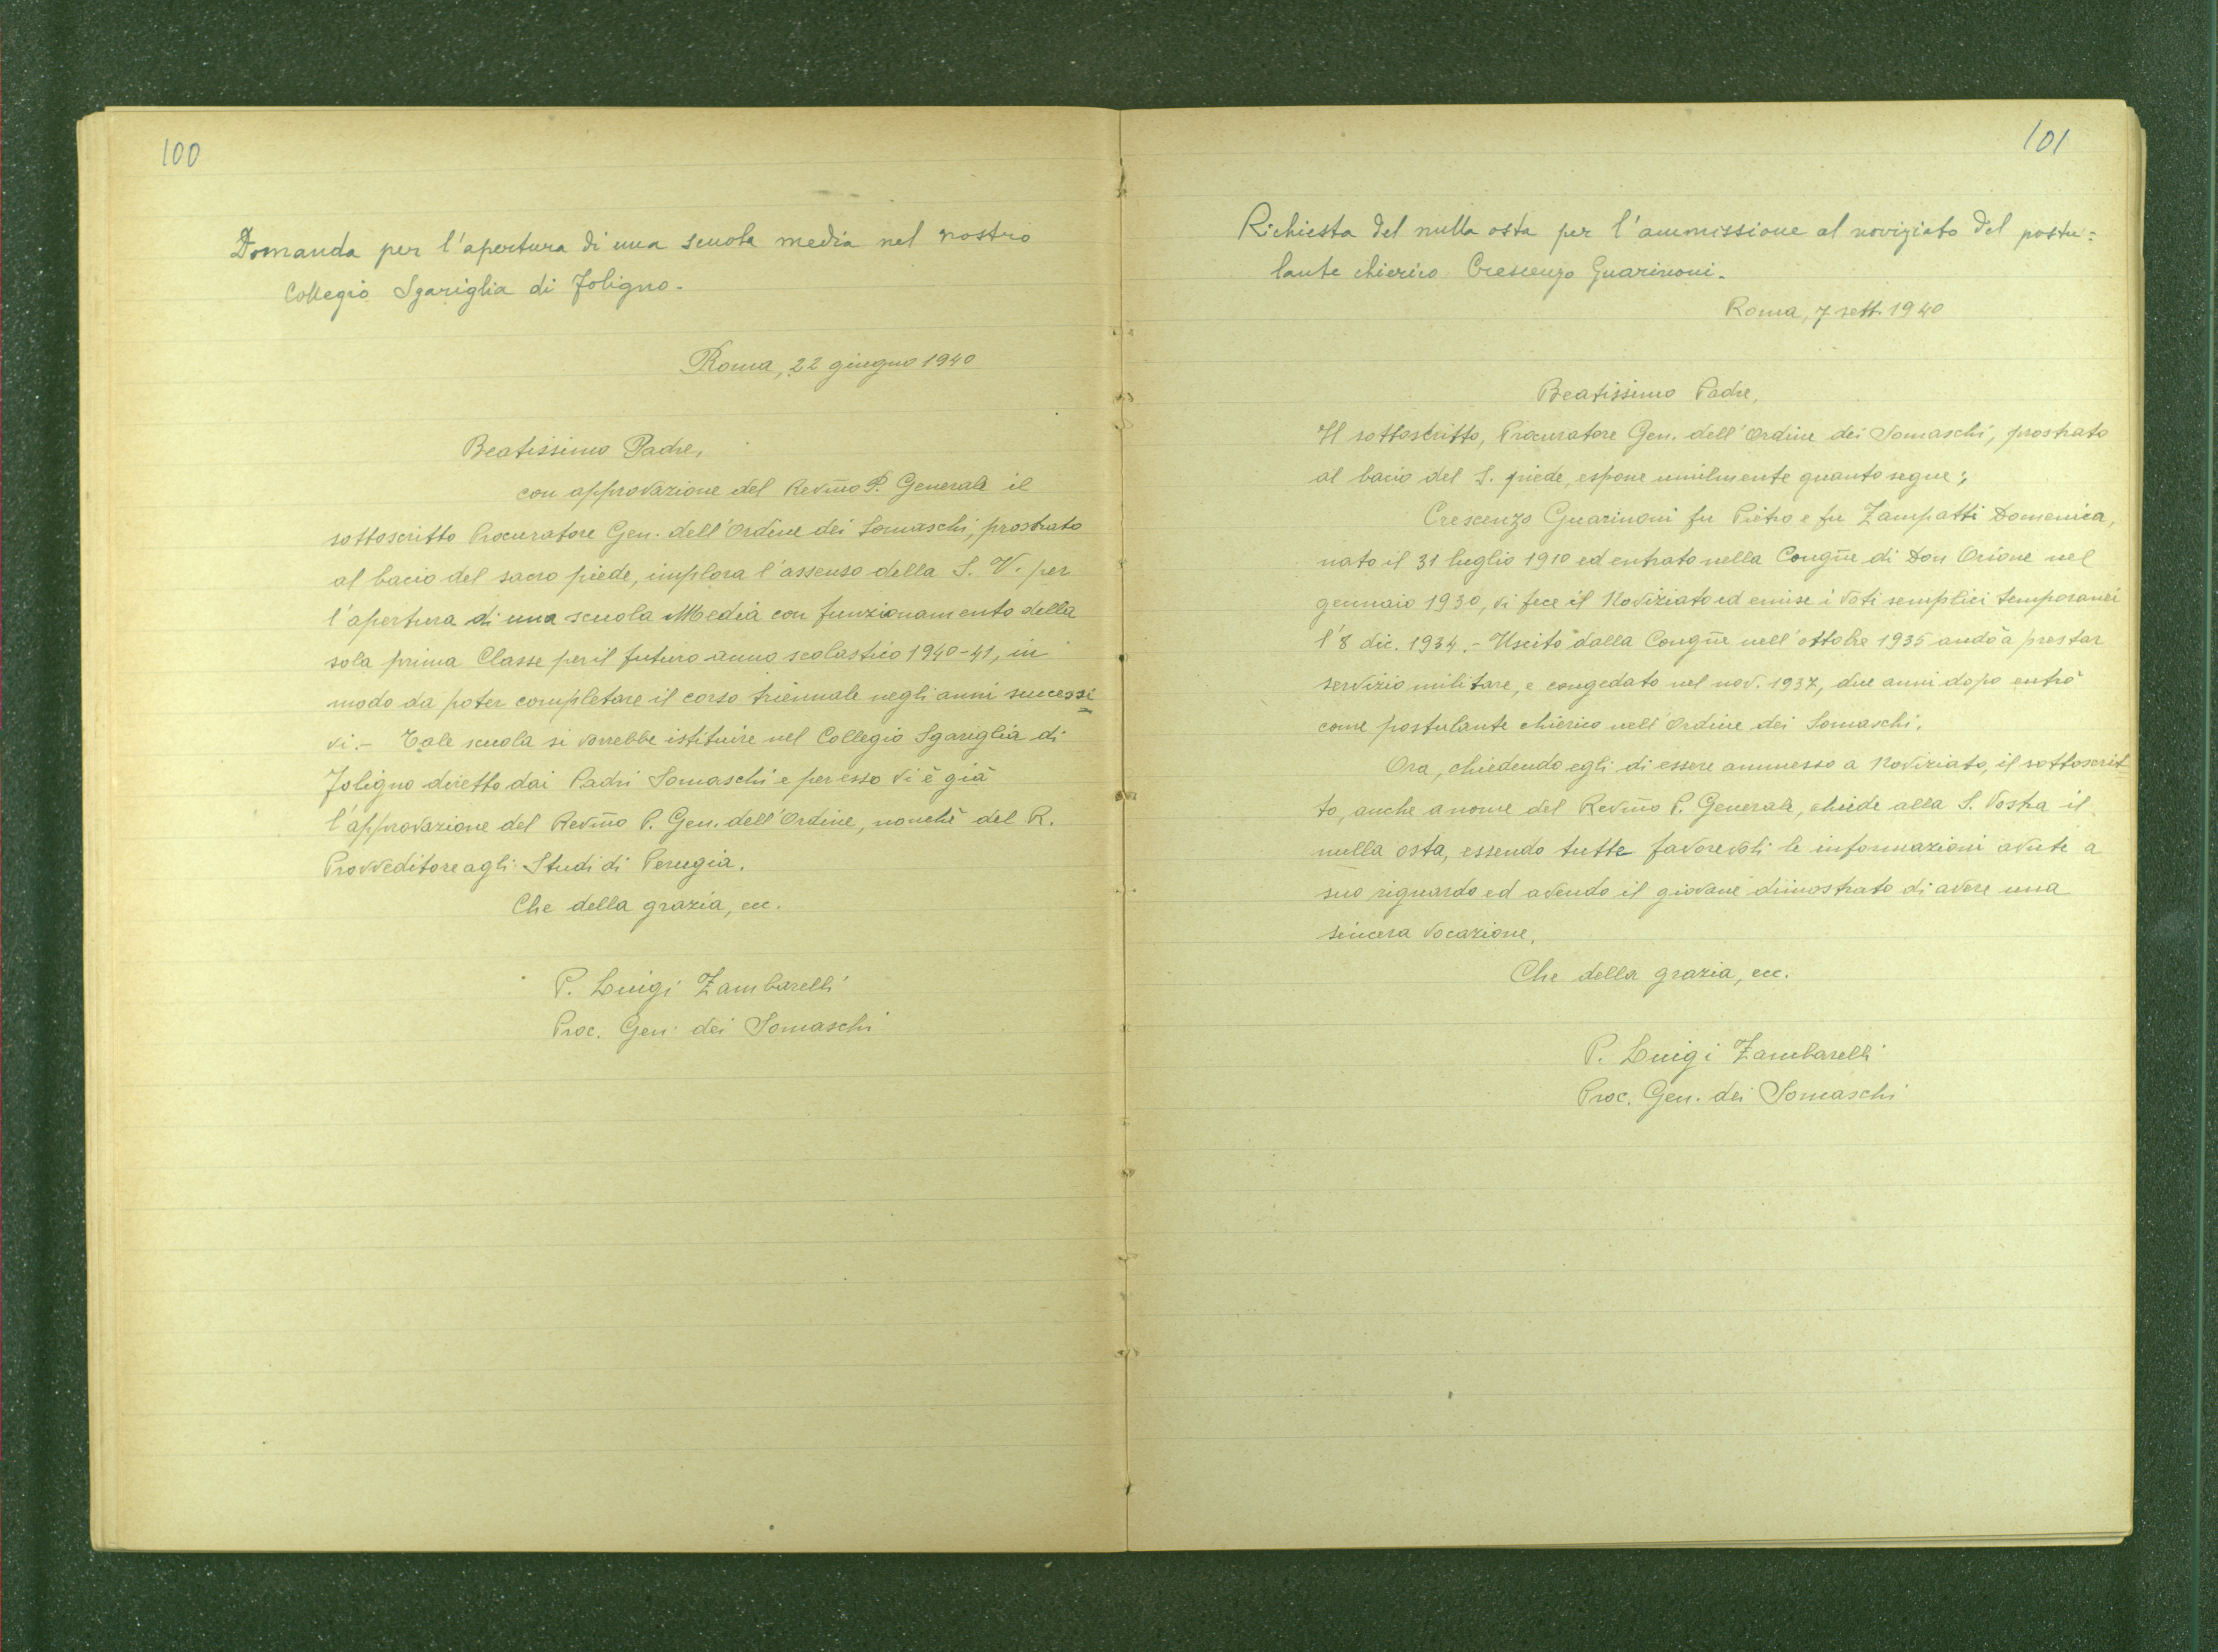 100
Domanda per l'apertura di una scuola media nel nostro
Collegio Sgariglia di Foligno.
Roma, 22 giugno 1940
Beatissimo Padre,
con approvazione del Revm̃o P. Generale il
sottoscritto Procuratore Gen. dell'Ordine dei Somaschi, prostrato
al bacio del sacro piede, implora l'assenso della S. V. per
l'apertura di una scuola Media con funzionamento della
sola prima Classe per il futuro anno scolastico 1940-41, in
modo da poter completare il corso triennale negli anni successi=
vi. - Tale scuola si vorrebbe istituire nel Collegio Sgariglia di
Foligno diretto dai Padri Somaschi e per esso vi è già
l'approvazione del Revm̃o P. Gen. dell'Ordine, nonchè del R.
Provveditore agli Studi di Perugia.
Che della grazia, ecc.
P. Luigi Zambarelli
Proc. Gen. dei Somaschi
101
Richiesta del nulla osta per l'ammissione al noviziato del postu=
lante chierico Crescenzo Guarinoni.
Roma, 7 sett. 1940
Beatissimo Padre,
Il sottoscritto, Procuratore Gen. dell'Ordine dei Somaschi, prostrato
al bacio del S. piede, espone umilmente quanto segue:
Crescenzo Guarinoni fu Pietro e fu Zampatti Domenica,
nato il 31 luglio 1910 ed entrato nella Congñe di Don Orione nel
gennaio 1930, vi fece il Noviziato ed emise i voti semplici temporanei
l'8 dic. 1934. - Uscito dalla Congñe nell'ottobre 1935 andò a prestar
servizio militare, e congedato nel nov. 1937, due anni dopo entrò
come postulante chierico nell'Ordine dei Somaschi.
Ora, chiedendo egli di essere ammesso a Noviziato, il sottoscrit
to, anche a nome del Revm̃o P. Generale, chiede alla S. Vostra il
nulla osta, essendo tutte favorevoli le informazioni avute a
suo riguardo ed avendo il giovane dimostrato di avere una
sincera vocazione.
Che della grazia, ecc.
P. Luigi Zambarelli
Proc. Gen. dei Somaschi